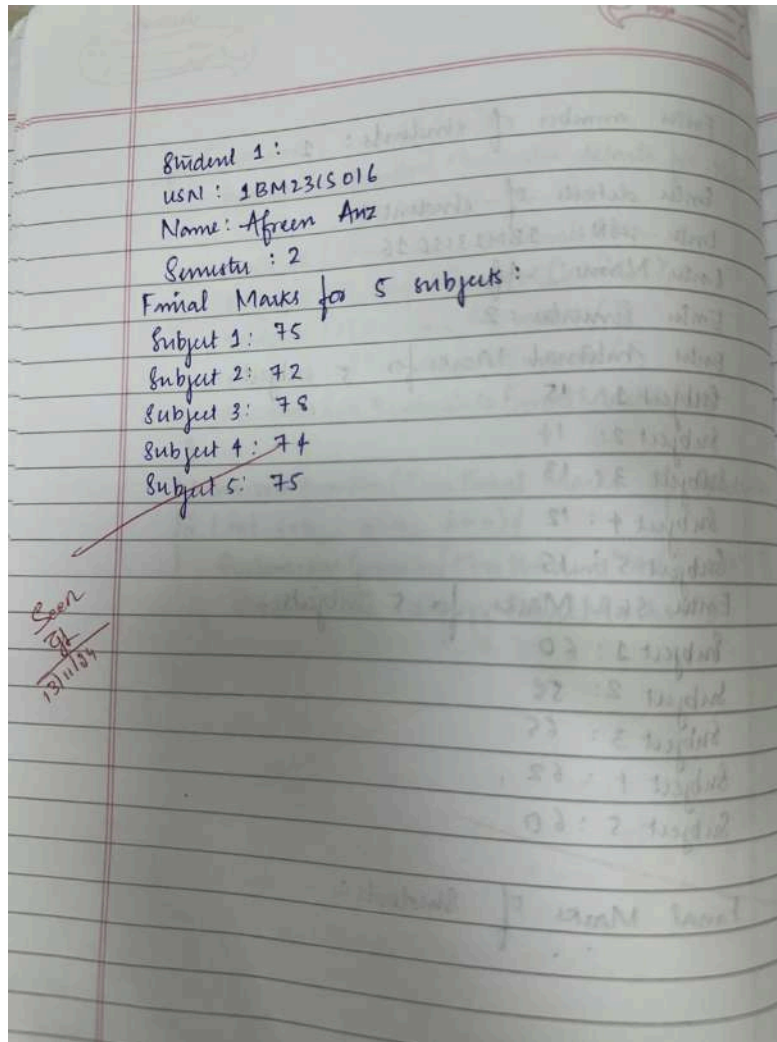 Student 1:
USN: 1BM23CS016
Name: Afreen Anz
Semester: 2
Final Marks for 5 subjects:
Subject 1: 75
Subject 2: 72
Subject 3: 78
Subject 4: 74
Subject 5: 75
Seen
13/11/24